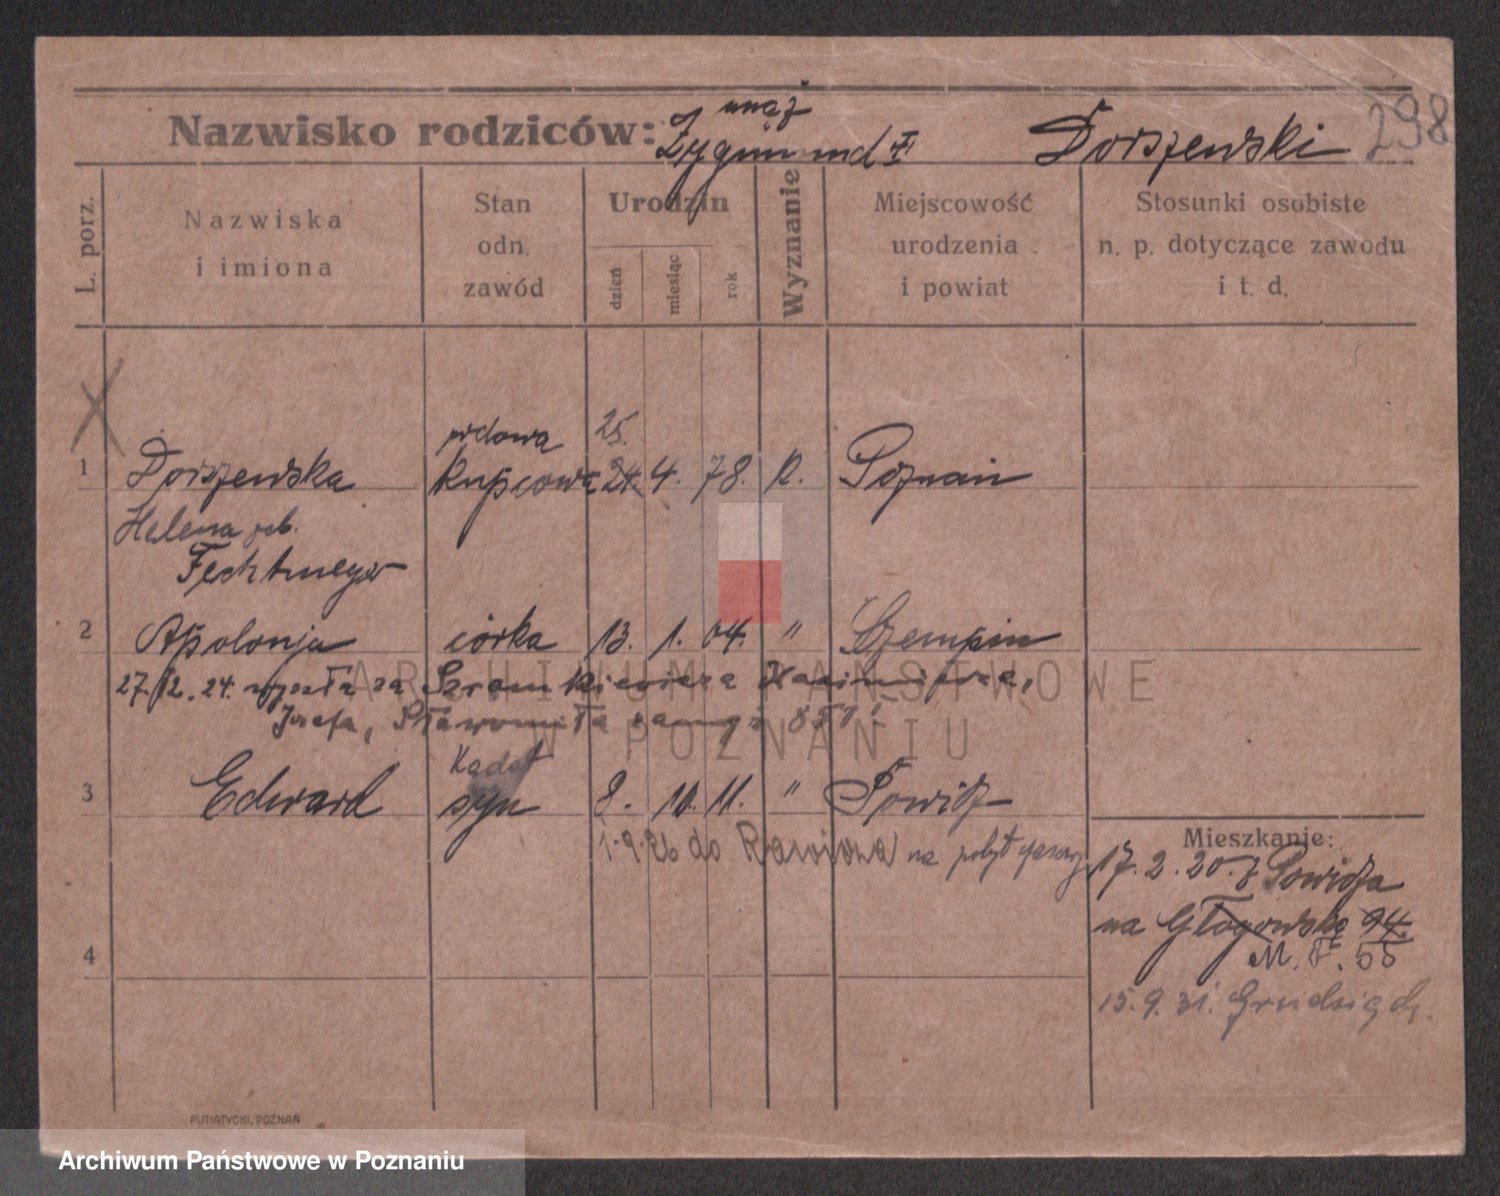 mąż
Nazwisko rodziców: Zygmund † Dorszewski 298
L. porz.
Nazwiska
i imiona
Stan
odn.
zawód
Urodzin
dzień
miesiąc
rok
Wyznanie
Miejscowość
urodzenia
i powiat
Stosunki osobiste
n. p. dotyczące zawodu
i t. d.
wdowa 25.
1 Dorszewska kupcowa 24. 4. 78. R. Poznań
Helena geb.
Fechtmeyer
2 Apolonja córka 13. 1. 04. " Czempin
27.12.24. wyszła za Szramkiewicza Kazimierza,
Józefa, Sławomiła
Kadet
3 Edward syn 8. 10. 11. " Powidz
1.9.26 do Rawicza na pobyt czasowy
Mieszkanie:
17.2.20. z Powidza
na Głogowska 94.
M. F. 55
4
15.9.31. Grudziądz.
PUTIATYCKI, POZNAŃ
ARCHIWUM PAŃSTWOWE
W POZNANIU
Archiwum Państwowe w Poznaniu